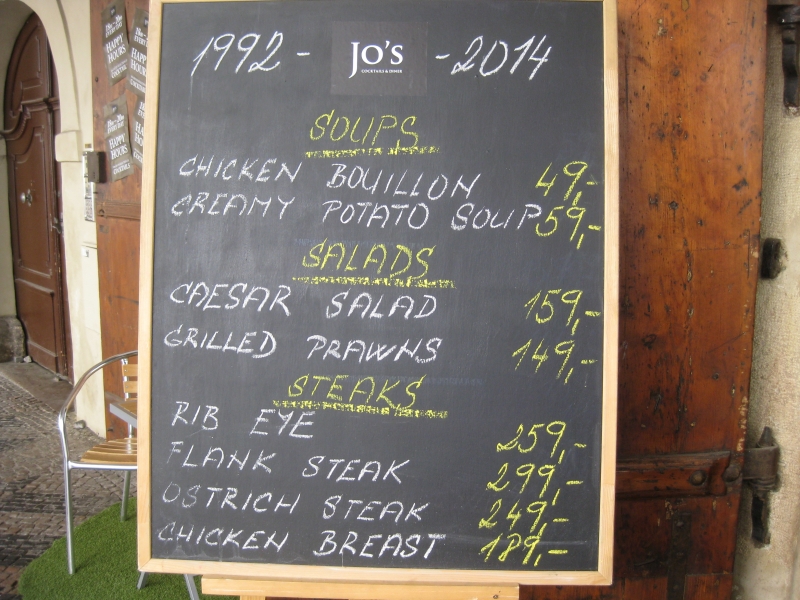 1992 - JO'S - 2014
COCKTAILS & DINER
SOUPS
CHICKEN BOUILLON 49,-
CREAMY POTATO SOUP 59,-
SALADS
CAESAR SALAD 159,-
GRILLED PRAWNS 149,-
STEAKS
RIB EYE 259,-
FLANK STEAK 299,-
OSTRICH STEAK 249,-
CHICKEN BREAST 189,-
HAPPY
HOURS
HAPPY
HOURS